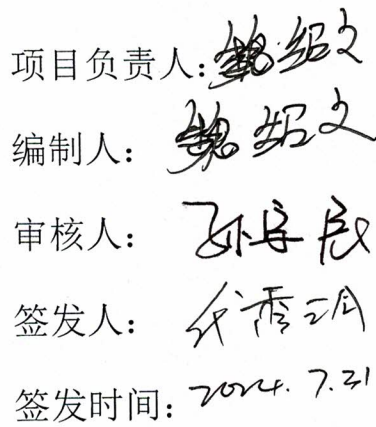 项目负责人：魏绍文
编制人：魏绍文
审核人：
签发人：
签发时间：2024.7.31